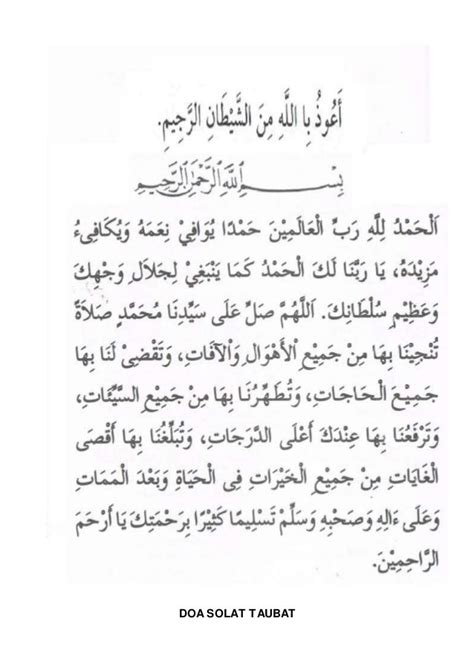 أَعُوذُ بِا اللَّهِ مِنَ الشَّيْطَانِ الرَّجِيمِ.
بِسْمِ اللَّهِ الرَّحْمَٰنِ الرَّحِيمِ
اَلْحَمْدُ لِلَّهِ رَبِّ الْعَالَمِيْنَ حَمْدًا يُوَافِيْ نِعَمَهُ وَيُكَافِىءُ
مَزِيْدَهُ، يَا رَبَّنَا لَكَ الْحَمْدُ كَمَا يَنْبَغِيْ لِجَلَالِ وَجْهِكَ
وَعَظِيْمِ سُلْطَانِكَ. اَللَّهُمَّ صَلِّ عَلَى سَيِّدِنَا مُحَمَّدٍ صَلَاةً
تُنْجِيْنَا بِهَا مِنْ جَمِيْعِ الْأَهْوَالِ وَالْآفَاتِ، وَتَقْضِىْ لَنَا بِهَا
جَمِيْعَ الْحَاجَاتِ، وَتُطَهِّرُنَا بِهَا مِنْ جَمِيْعِ السَّيِّئَاتِ،
وَتَرْفَعُنَا بِهَا عِنْدَكَ أَعْلَى الدَّرَجَاتِ، وَتُبَلِّغُنَا بِهَا أَقْصَى
الْغَايَاتِ مِنْ جَمِيْعِ الْخَيْرَاتِ فِى الْحَيَاةِ وَبَعْدَ الْمَمَاتِ
وَعَلَى ءَالِهِ وَصَحْبِهِ وَسَلِّمْ تَسْلِيْمًا كَثِيْرًا بِرَحْمَتِكَ يَا أَرْحَمَ
الرَّاحِمِيْنَ.
DOA SOLAT TAUBAT